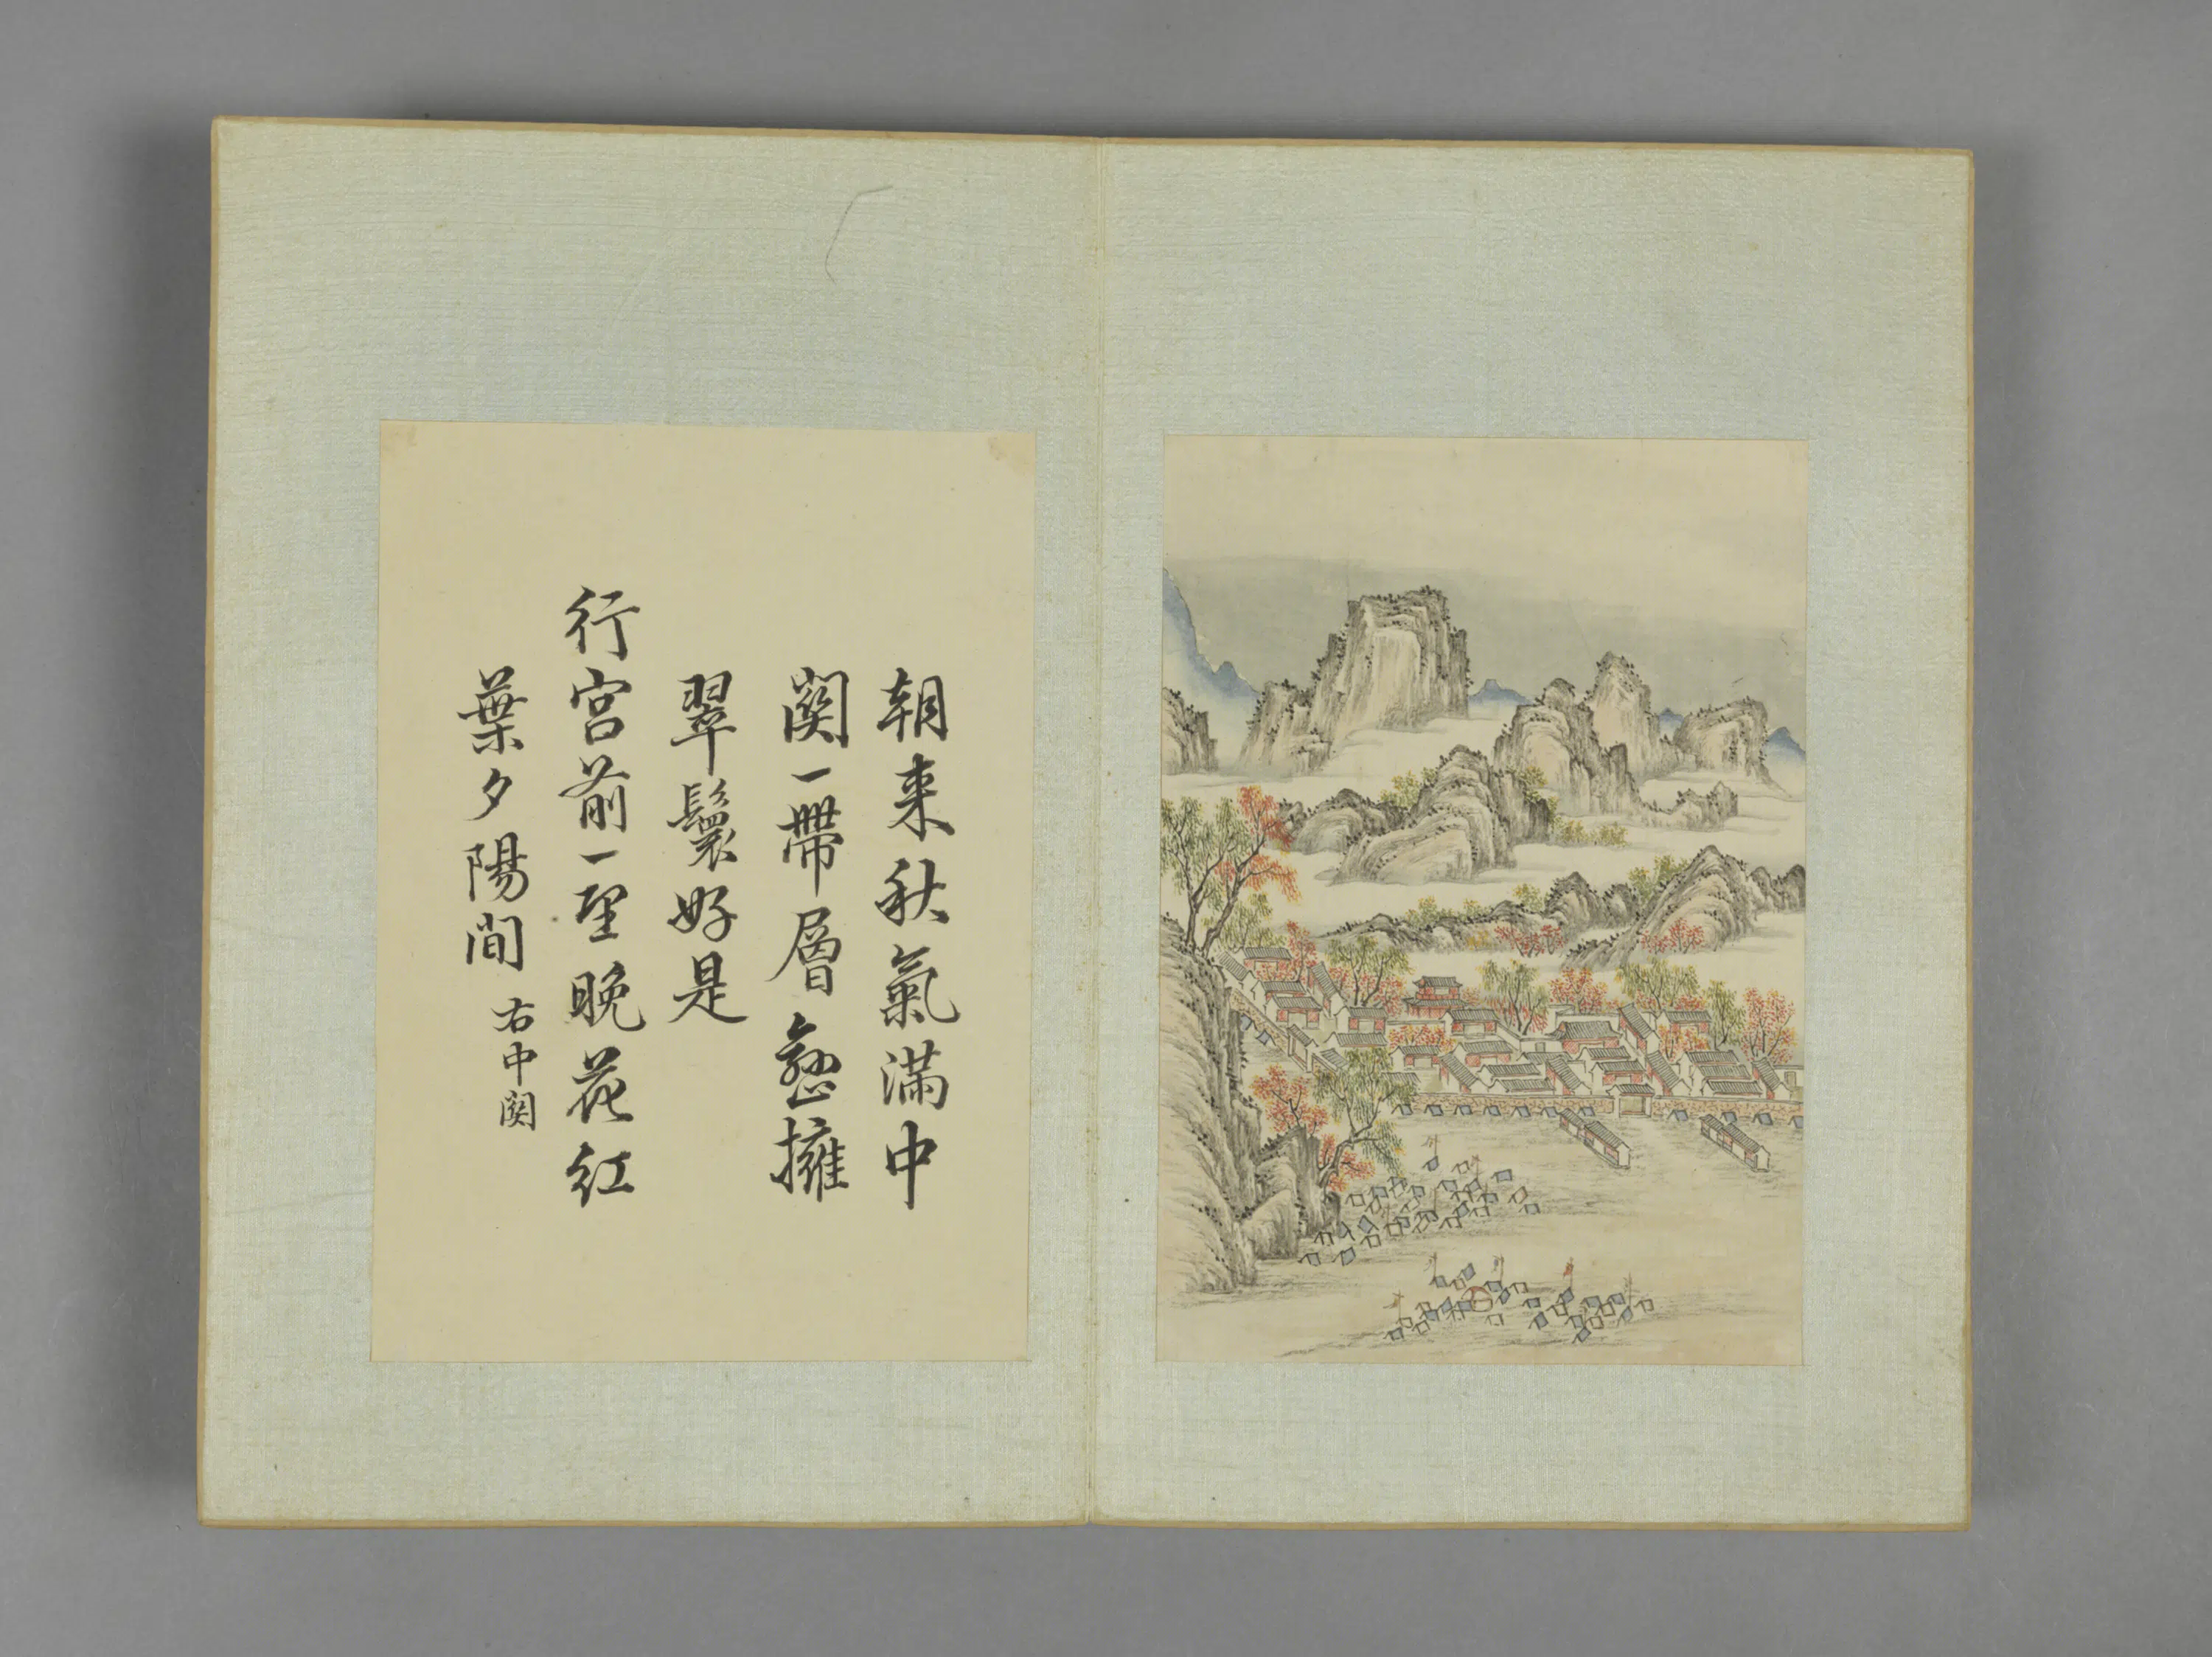 朝来秋氣滿中
関一帶層巒擁
翠鬟好是
行宮前一望晚花紅
葉夕陽間
右中関